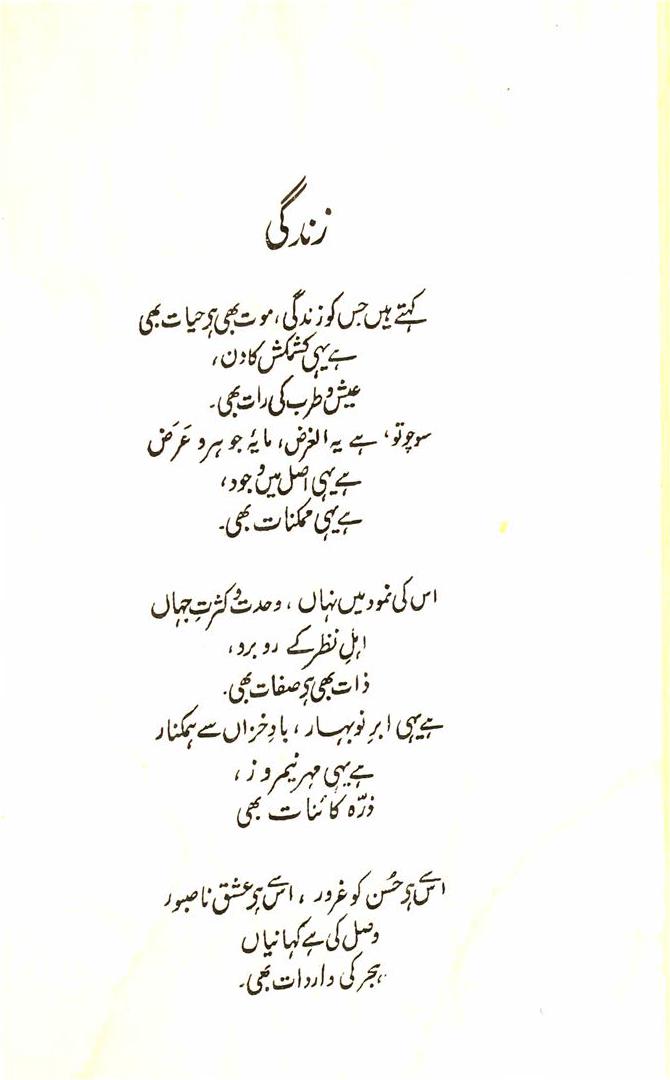 زندگی
کہتے ہیں جس کو زندگی، موت بھی ہے حیات بھی
ہے یہی کشمکش کا دن،
عیش و طرب کی رات بھی۔
سوچو تو، ہے یہ الغرض، مایۂ جوہر و عَرَض
ہے یہی اصل میں وجود،
ہے یہی ممکنات بھی۔
اس کی نمود میں نہاں، وحدت و کثرتِ جہاں
اہلِ نظر کے رو برو،
ذات بھی ہے صفات بھی۔
ہے یہی ابرِ نوبہار، بادِ خزاں سے ہمکنار
ہے یہی مہرِ نیمروز،
ذرّہ کائنات بھی
اس سے ہے حُسن کو غرور، اس سے ہے عشق ناصبور
وصل کی ہے کہانیاں
ہجر کی واردات بھی۔